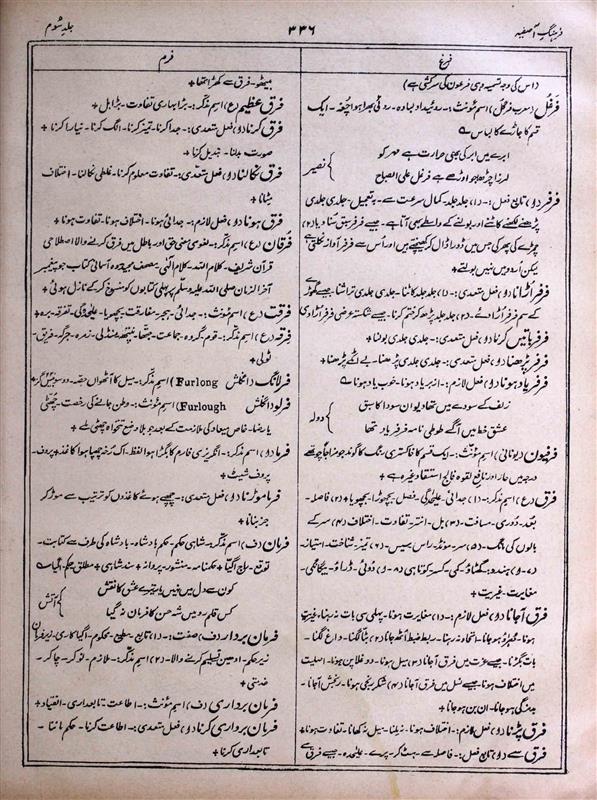 فرہنگِ آصفیہ
۳۳۶
جلدِ سوم
فرغ
(اس کی وجہ تسمیہ وہی فرعون کی سرکشی ہے)
فَرغُل (معرب فرگل) اسم مؤنث:۔ روئیدار لبادہ۔ روئی بھرا ہوا چغہ۔ ایک
قسم کا جاڑے کا لباس ؎
ابر میں ابر کی بھی حرارت ہے مہر کو
نصیر
لرزا چڑھا جو اوڑھے ہے فرغل علی الصباح
فرفر (و) تابع فعل:۔ (۱) جلد جلد۔ کمال سرعت سے۔ بہ تعجیل۔ جلدی جلدی
پڑھنے لکھنے کاٹنے اور بولنے کے واسطے بھی آتا ہے۔ جیسے فرفر سبق سنا دیا (۲)
چمڑے کی پھرکی جس میں ڈورا ڈال کر کھینچتے ہیں اور اُس سے فرفر آواز نکلتی ہے
لیکن اردو میں نہیں بولتے +
فرفر اُڑانا (و) فعل متعدی:۔ (۱) جلد جلد کاٹنا۔ جلدی جلدی تراشنا جیسے گھوڑے
کے سم فرفر اُڑا دئے (۲) جلد جلد پڑھ کر ختم کرنا۔ جیسے شکستہ عرضی فرفر اُڑا دی
فرفر باتیں کرنا (و) فعل متعدی:۔ جلدی جلدی بولنا +
فرفر پڑھنا (و) فعل متعدی:۔ جلدی جلدی پڑھنا۔ بے اٹکے پڑھنا +
فرفر یاد ہونا (و) فعل لازم:۔ ازبر یاد ہونا۔ خوب یاد ہونا ؎
زلف کے سودے میں تھا دیوان سودا کا سبق
دولہ
عشق خط میں آگے طوطی نامہ فرفر یاد تھا
فرفیون (یونانی) اسم مؤنث:۔ ایک قسم کا خاکستری رنگ کا گوند جو مزاجاً چوتھے
درجہ میں حار اور نافع لقوہ فالج استسقا وغیرہ ہے +
فرق (ع) اسم مذکر:۔ (۱) جدائی۔ علیحدگی۔ فصل۔ بچھوڑا۔ بچھوہا (۲) فاصلہ۔
بعد۔ دُوری۔ مسافت (۳) بل۔ انتر۔ تفاوت۔ اختلاف (۴) سر کے
بالوں کی مانگ (۵) سر۔ مونڈ۔ راس۔ سیس (۶) تمیز۔ شناخت۔ امتیاز
(۷) ہندو:۔ گھٹاؤ۔ کمی۔ کسر۔ کوتاہی (۸) دُوئی۔ دُراؤ۔ بیگانگی۔
مغایرت۔ غیریت +
فرق آ جانا (و) فعل لازم:۔ (۱) مغایرت ہونا۔ پہلی سی بات نہ رہنا۔ غیریت
ہونا۔ اتحاد نہ رہنا۔ ربط ضبط اُٹھ جانا (۲) بٹا لگنا۔ داغ لگنا۔
بات بگڑنا۔ جیسے عزت میں فرق آ جانا (۳) میل ہونا۔ دوغلا پن ہونا۔ اصلیت
میں اختلاف ہونا۔ جیسے نسل میں فرق آ جانا (۴) شکر رنجی ہونا۔ رنجش آ جانا۔
بے مزگی ہو جانا۔ ان بن ہو جانا +
فرق پڑنا (و) فعل لازم:۔ اختلاف ہونا۔ نہ بننا۔ میل نہ کھانا۔ تفاوت ہونا +
فرق سے (و) تابع فعل:۔ فاصلہ سے۔ ہٹ کر۔ پرے۔ علیحدہ۔ جیسے فرق سے
فرم
بیٹھو۔ فرق سے کھڑا تھا +
فرق عظیم (ع) اسم مذکر:۔ بڑا بھاری تفاوت۔ بڑا بل +
فرق کرنا (و) فعل متعدی:۔ جدا کرنا۔ تمیز کرنا۔ الگ کرنا۔ نیارا کرنا +
صورت بدلنا۔ تبدیل کرنا +
فرق نکالنا (و) فعل متعدی:۔ تفاوت معلوم کرنا۔ غلطی نکالنا۔ اختلاف
بتانا +
فرق ہونا (و) فعل لازم:۔ جدائی ہونا۔ اختلاف ہونا۔ تفاوت ہونا +
فُرقان (ع) اسم مذکر:۔ لغوی معنی حق اور باطل میں فرق کرنے والا اصطلاحی
قرآن شریف۔ کلام اللہ۔ کلام الٰہی۔ مصحفِ مجید وہ آسمانی کتاب جو پیغمبر
آخر الزمان صلی اللہ علیہ وسلم پر پہلی کتابوں کو منسوخ کر کے نازل ہوئی +
فُرقت (ع) اسم مؤنث:۔ جدائی۔ ہجر۔ مفارقت۔ بچھڑیا۔ علیحدگی۔ تفرقہ۔ برہ +
فرقہ (ع) اسم مذکر:۔ قوم۔ گروہ۔ جماعت۔ جتھا۔ پنتھ۔ منڈلی۔ زمرہ۔ جرگہ۔ فریق۔
ٹولی +
فرلانگ (انگلش Furlong) اسم مذکر:۔ میل کا آٹھواں حصہ۔ دو سو بیس گز +
فرلو (انگلش Furlough) اسم مؤنث:۔ وطن جانے کی رخصت۔ چھٹی
یا رضا۔ خاص میعاد کی ملازمت کے بعد جو بلا وضع تنخواہ چھٹی ملے +
فرما (و) اسم مذکر:۔ انگریزی فارم کا بگڑا ہوا لفظ۔ اک رُخہ چھپا ہوا کاغذ۔ پروف۔
پروف شیٹ +
فرما موڑنا (و) فعل متعدی:۔ چھپے ہوئے کاغذوں کو ترتیب سے موڑ کر
جز بنانا +
فرمان (ف) اسم مذکر:۔ شاہی حکم۔ حکم بادشاہ۔ بادشاہ کی طرف سے کتابت۔
توقیع۔ راج آگیا + حکمنامہ۔ منشور۔ پروانہ + سندِ شاہی + مطلق حکم۔ آگیا ؎
کون سے دل میں نہیں یا تیرے عشق کا نقش
آتش
کس قلم رو میں شہِ حسن کا فرمان نہ گیا
فرمان بردار (ف) صفت:۔ (۱) تابع۔ مطیع۔ محکوم۔ آگیا کاری۔ زیرِ فرمان
زیرِ حکم۔ اوہین تسلیم کرنے والا۔ (۲) اسم مذکر:۔ ملازم۔ نوکر۔ چاکر۔
خدمتی +
فرمان برداری (ف) اسم مؤنث:۔ اطاعت۔ تابعداری۔ انقیاد +
فرمان برداری کرنا (و) فعل متعدی:۔ اطاعت کرنا۔ حکم ماننا۔
تابعداری کرنا +